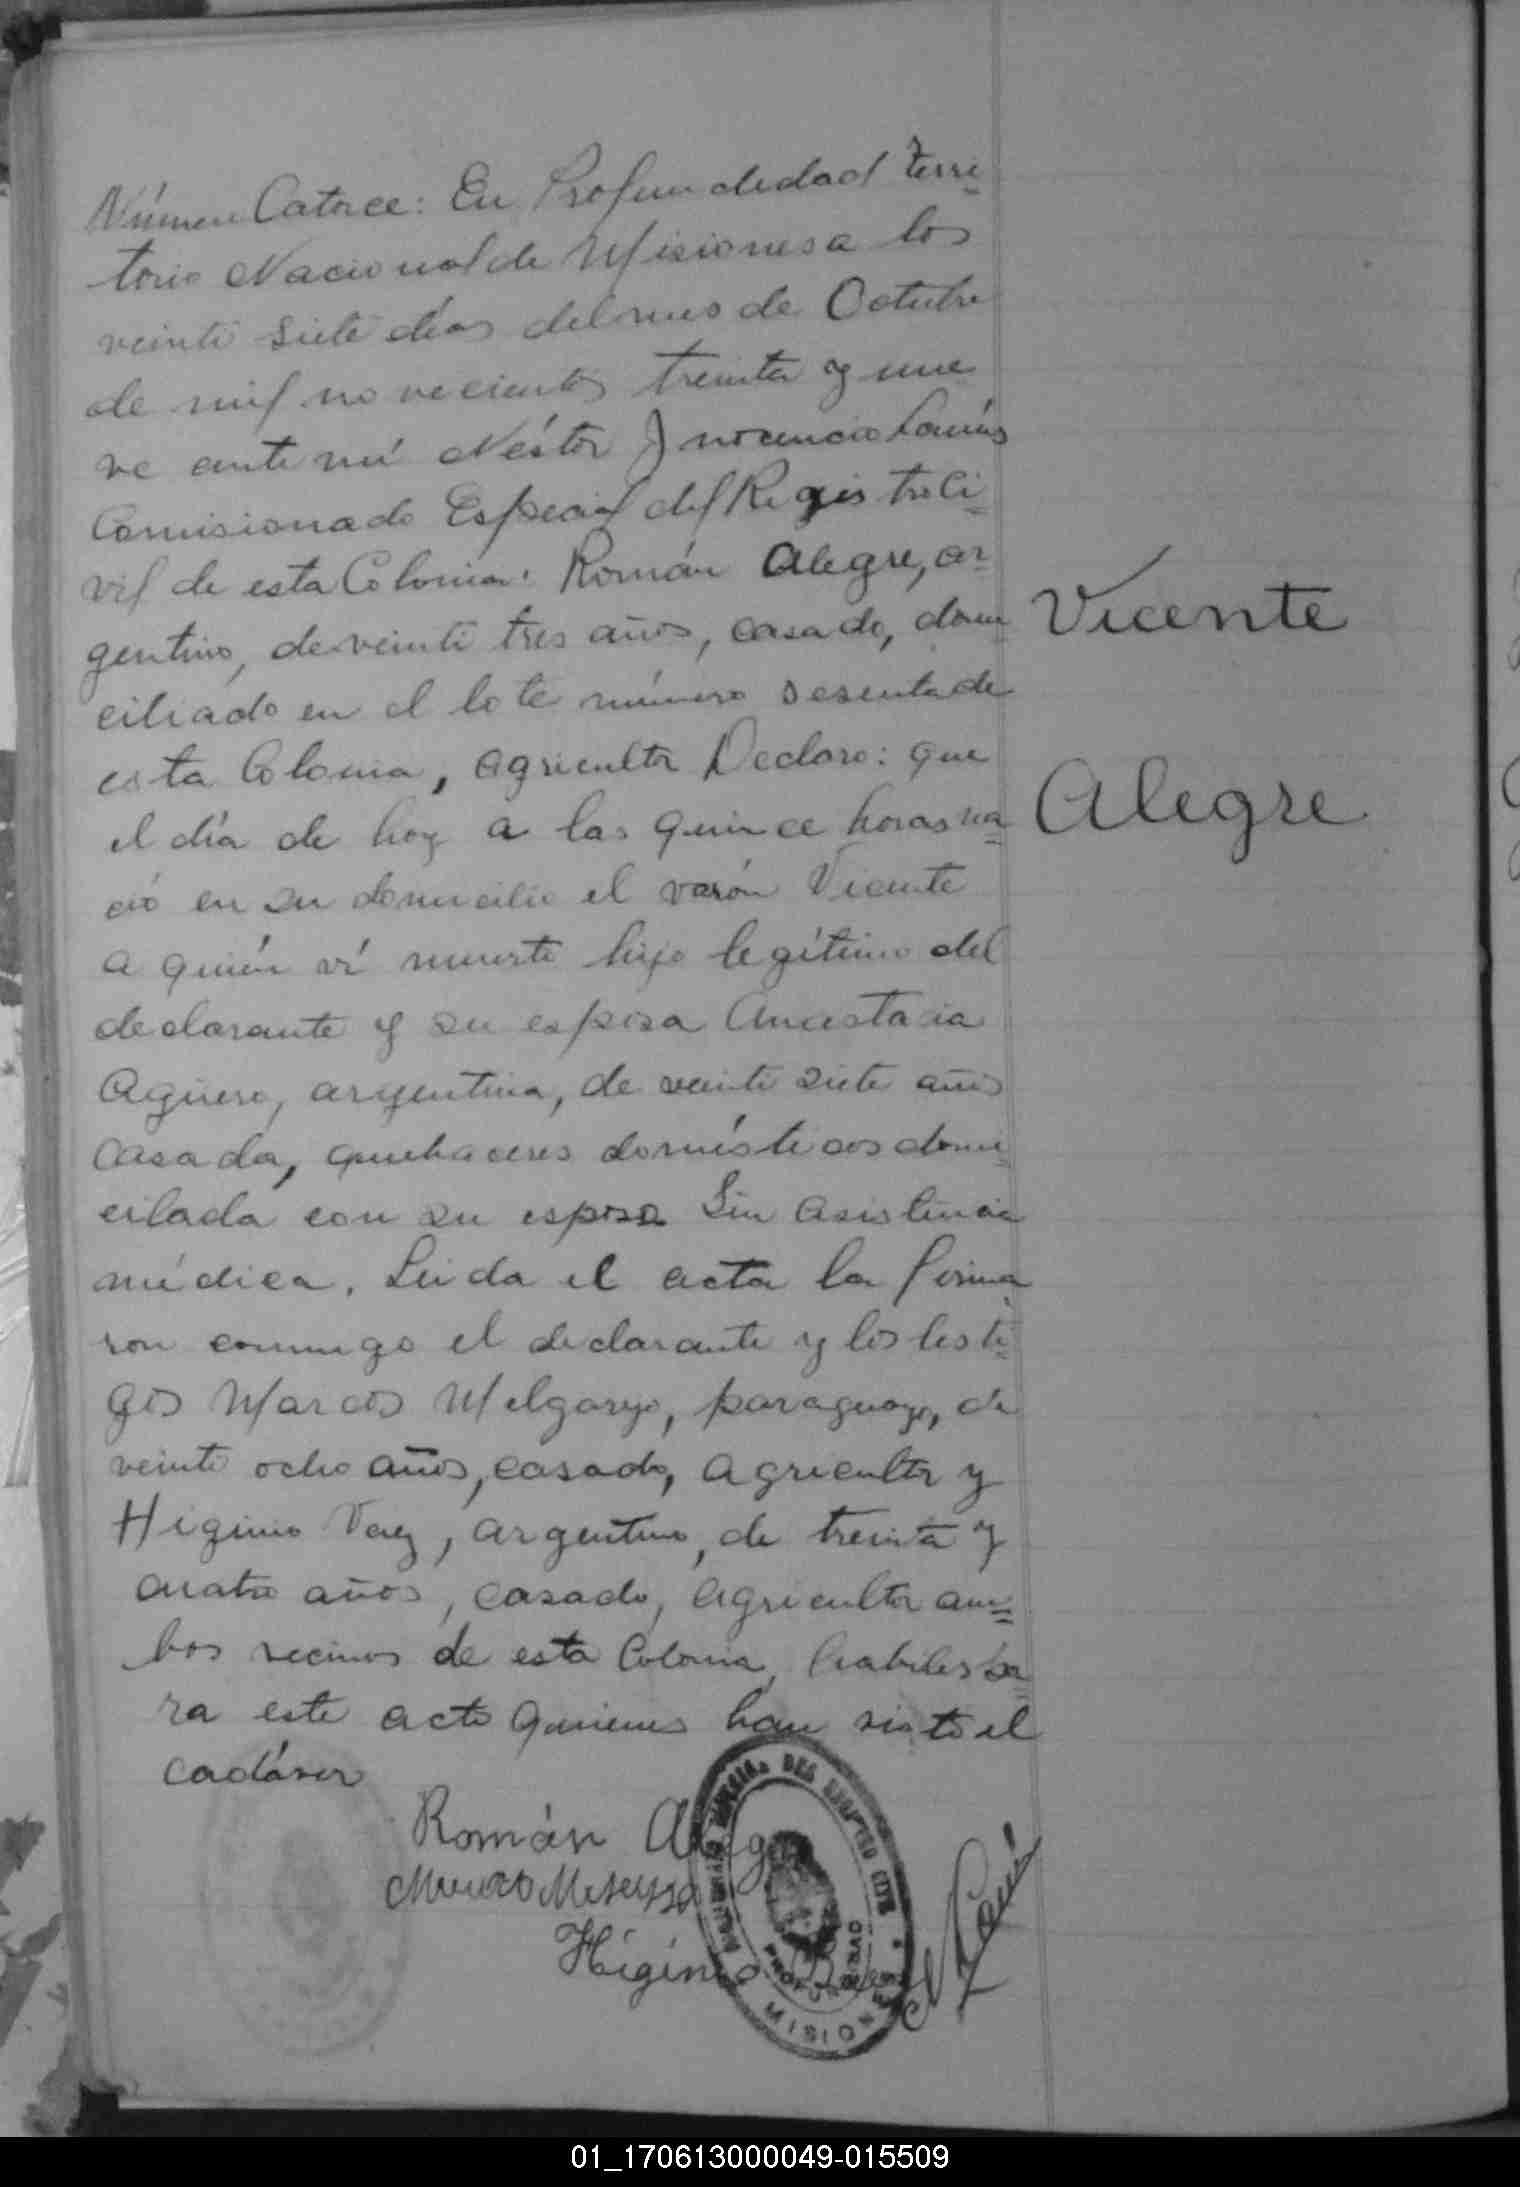 Número Catorce: En Profundidad terri-
torio Nacional de Misiones a los
veinti siete días del mes de Octubre
de mil novecientos treinta y nue
ve ante mí Néstor Inocencio Lanús
Comisionado Especial del Registro Ci-
vil de esta Colonia: Román Alegre, ar-
gentino, de veinti tres años, casado, domi
Vicente
ciliado en el lote número sesenta de
esta Colonia, agricultor Declaro: que
el día de hoy a las quince horas na-
Alegre
ció en su domicilio el varón Vicente
a quién ví muerto hijo legítimo del
declarante y su esposa Anastacia
Agüero, argentina, de veinti siete años
casada, quehaceres domésticos domi-
cilada con su esposo Sin asistencia
médica. Leida el acta la firma
ron conmigo el declarante y los testi-
gos Marcos Melgarejo, paraguayo, de
veinti ocho años, casado, agricultor y
Higinio Vaez, argentino, de treinta y
cuatro años, casado, agricultor am-
bos vecinos de esta Colonia, habiles pa-
ra este acto quienes han visto el
cadáver
Román Alegre
Higinio
N Lanús
PROFUNDIDAD
MISIONES
01_170613000049-015509